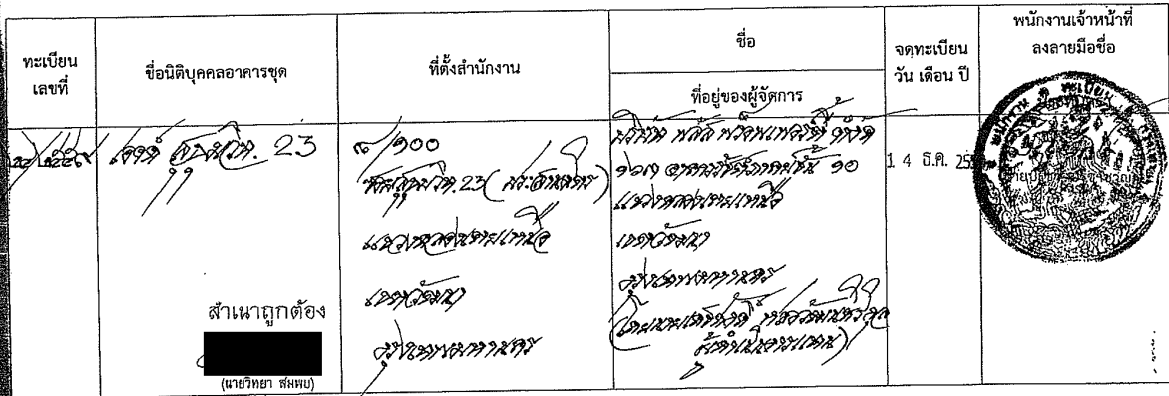 ทะเบียน
เลขที่
ชื่อนิติบุคคลอาคารชุด
ที่ตั้งสำนักงาน
ชื่อ
ที่อยู่ของผู้จัดการ
จดทะเบียน
วัน เดือน ปี
พนักงานเจ้าหน้าที่
ลงลายมือชื่อ
สุขุมวิท. 23
๘/๑๐๐
ซอยสุขุมวิท.23 (ประสานมิตร)
แขวงคลองเตยเหนือ
เขตวัฒนา
กรุงเทพมหานคร
บริษัท พลัส พร็อพเพอร์ตี้ จำกัด
ชั้น ๑๐
แขวงคลองเตยเหนือ
เขตวัฒนา
กรุงเทพมหานคร
ผู้ดำเนินการแทน)
1 4 ธ.ค. 25
สำเนาถูกต้อง
(นายวิทยา สมพบ)